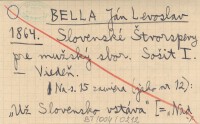 BELLA Ján Levoslav
1864. Slovenské Štvorspevy
pre mužský sbor. Sošit I.
Viedeň.
Na s. 15 = uviera (jeho nr 12):
"Už Slovensko vstáva" I=, Nád